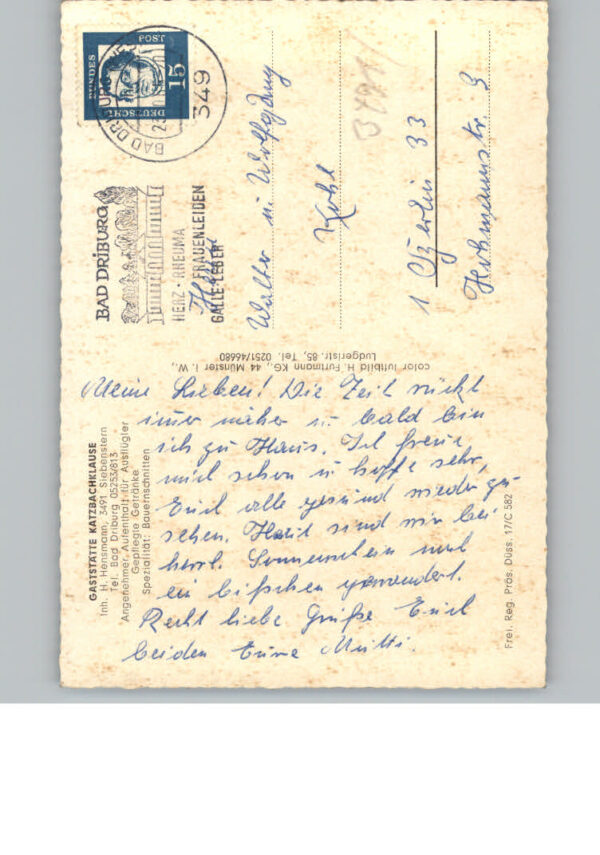 GASTSTÄTTE KATZBACHKLAUSE
Inh. H. Hensmann, 3491 Siebenstern
Tel. Bad Driburg 05253/813
Angenehmer Aufenthalt für Ausflügler
Gepflegte Getränke
Spezialität: Bauernschnitten
Meine Lieben! Die Zeit rückt
imer näher u. bald bin
ich zu Haus. Ich freue
mich schon u. hoffe sehr,
Euch alle gesund wieder zu
sehen. Heut sind wir bei
herrl. Sonnenschein mal
ein bißchen gewandert.
Recht liebe Grüße Euch
beiden Eure Mutti.
color luftbild H. Furtmann KG., 44 Münster i. W.,
Ludgeristr. 85, Tel. 0251/46680
Frei. Reg. Präs. Düss. 17/C 582
BAD DRIBURG
HERZ · RHEUMA
FRAUENLEIDEN
GALLE·LEBER
DEUTSCHE
BUNDES
POST
15
BAD DRIBURG
349
Walter u. Wolfgang
Kohl
1 Berlin 33